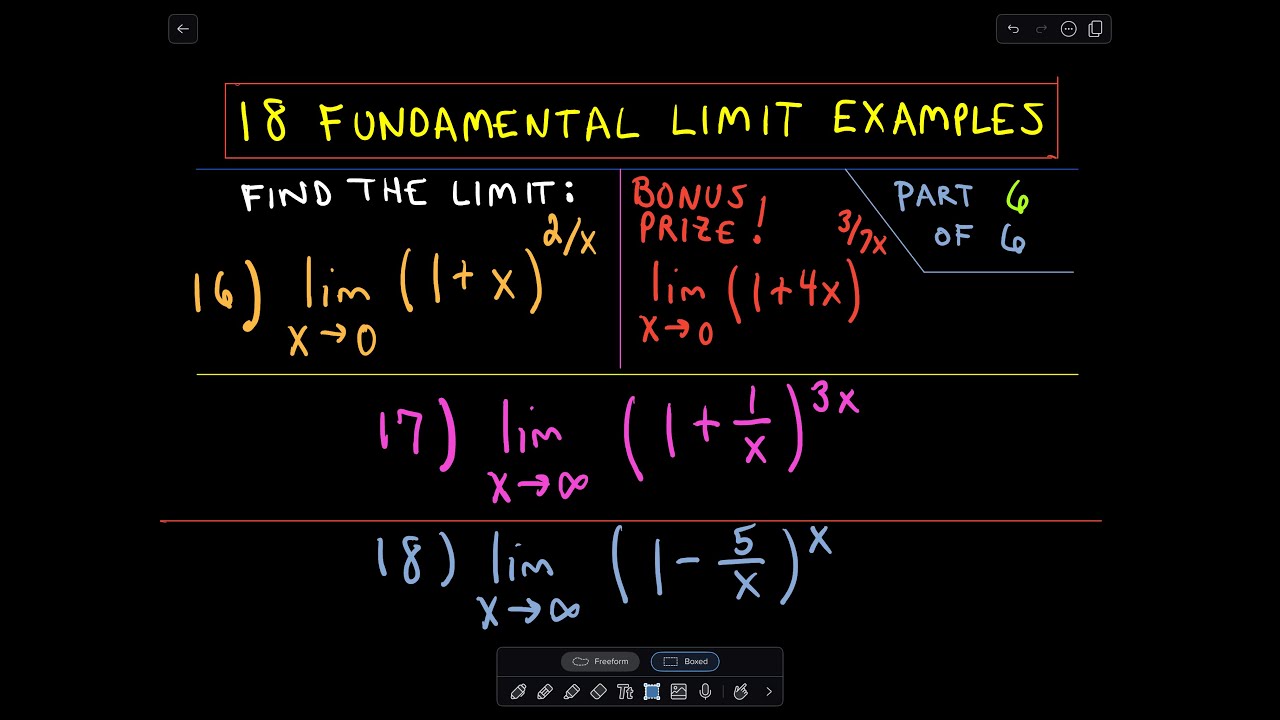 18 FUNDAMENTAL LIMIT EXAMPLES
FIND THE LIMIT:
16) lim x→0 (1 + x)^2/x
BONUS
PRIZE!
lim x→0 (1+4x)^3/7x
PART 6
OF 6
17) lim x→∞ (1 + 1/x)^3x
18) lim x→∞ (1 - 5/x)^x
Freeform
Boxed
Tt